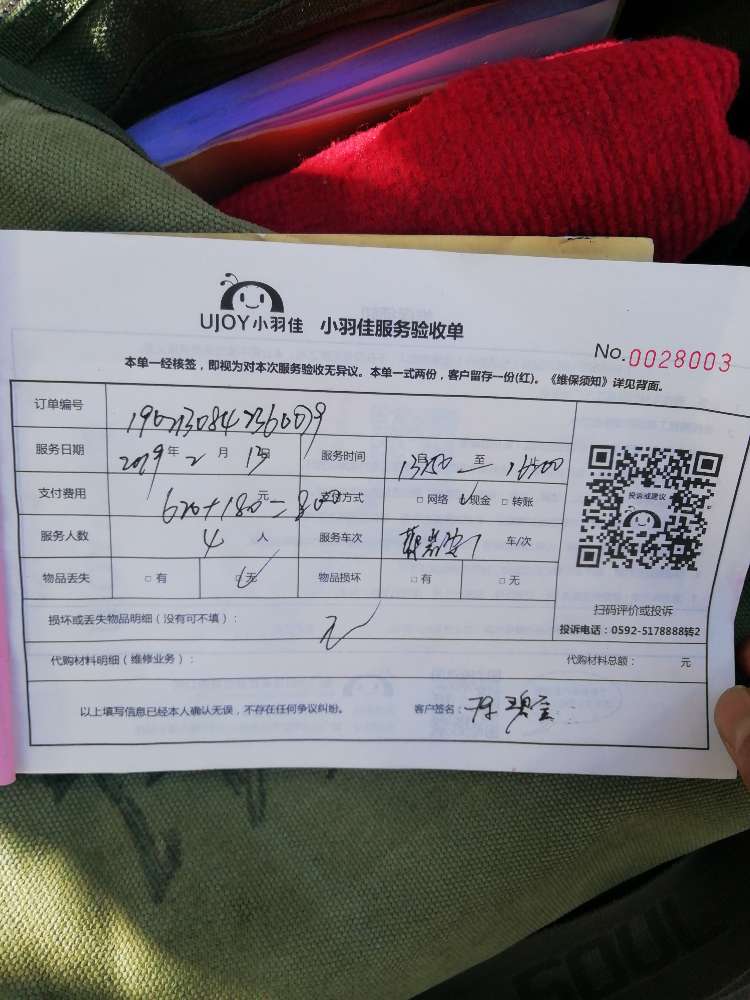 UJOY小羽佳 小羽佳服务验收单
No.0028003
本单一经核签，即视为对本次服务验收无异议。本单一式两份，客户留存一份(红)。《维保须知》详见背面。
订单编号
服务日期 2019年2月13日 服务时间 至
支付费用 620+180=800元 支付方式 □网络 □现金 □转账
服务人数 4人 服务车次 车/次
物品丢失 □有 □无 物品损坏 □有 □无
损坏或丢失物品明细（没有可不填）：
代购材料明细（维修业务）： 代购材料总额： 元
以上填写信息已经本人确认无误，不存在任何争议纠纷。 客户签名：
投诉或建议
扫码评价或投诉
投诉电话：0592-5178888转2